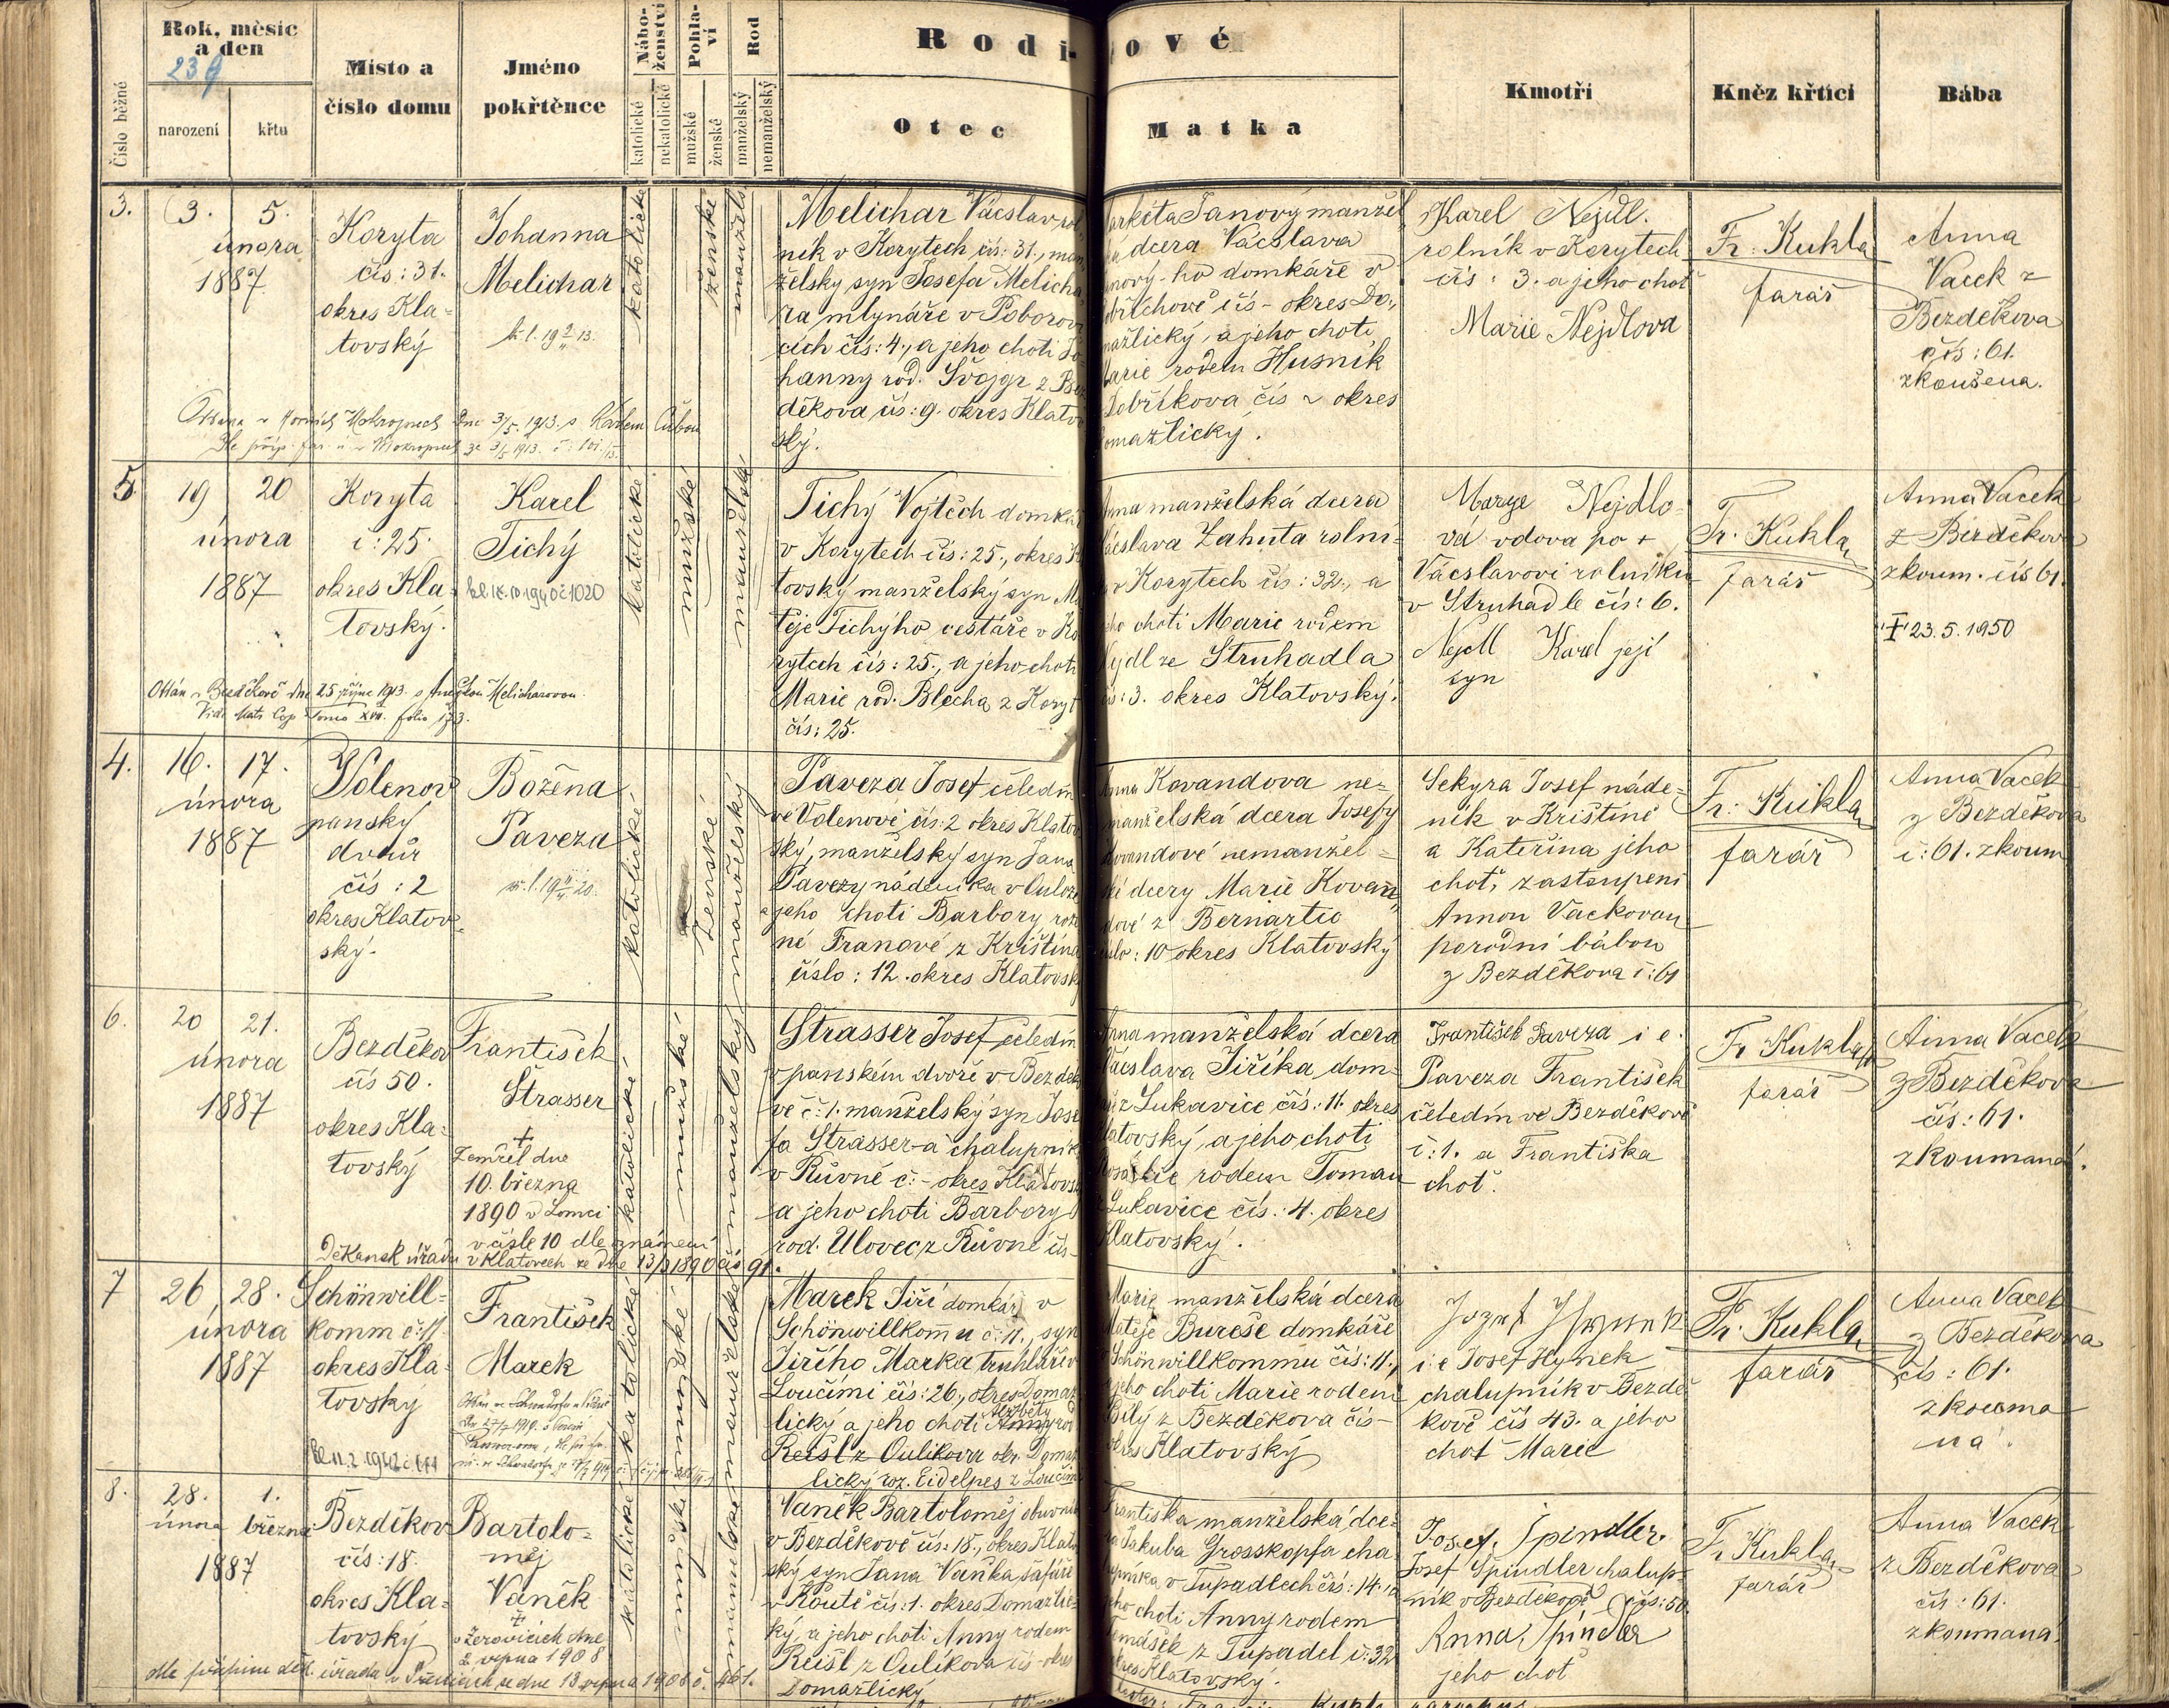 Rok, měsíc
a den
239
narození
křtu
Číslo běžné
Místo a
číslo domu
Jméno
pokřtěnce
Nábo-
ženství
katolické
nekatolické
Pohla-
ví
mužské
ženské
Rod
manželský
nemanželský
Rodi-
ové
Otec
Matka
Kmotři
Kněz křtící
Bába
3.
3. 5.
února
1887
Koryta
čís: 31.
okres Kla-
tovský
Johanna
Melichar
katolické
ženské
Melichar Vácslav rol-
ník v Korytech čís: 31., man-
želský syn Josefa Melicha-
ra mlynáře v Poborovi-
cích čís: 4., a jeho choti Jo-
hanny rod. Švajgr z Bez-
děkova čís: 9. okres Klatov-
ský.
dcera Vácslava
ho domkáře v
čís - okres Do-
mažlický, a jeho choti
Marie rodem Husník
Dobříkova čís ~ okres
Domažlický.
Karel Nejdl.
rolník v Korytech
čís: 3. a jeho choť
Marie Nejdlova
Fr. Kukla
farář
Anna
Vacek z
Bezděkova
čís: 61.
zkoušena.
5
19 20
února
1887
Koryta
č: 25.
okres Kla-
tovský.
Karel
Tichý
katolické
mužské
manželské
Oddán v Bezděkově dne 25 října 1913. s Anežkou Melicharovou.
Tichý Vojtěch domkář
v Korytech čís: 25., okres K
tovský manželský syn Ma-
těje Tichýho, cestáře v Ko-
rytech čís: 25., a jeho choti
Marie rod. Blecha z Koryt
čís: 25.
Anna manželská dcera
Vácslava Zahuta rolní-
v Korytech čís: 32., a
jeho choti Marie rodem
Nydl ze Struhadla
čís: 3. okres Klatovský.
Marye Nejdlo-
vá vdova po +
Vácslavovi rolníku
v Struhadle čís: 6.
Nejdl Karel její
syn
Fr. Kukla
farář
Anna Vacek
z Bezděkova
zkoum. čís 61.
23.5.1950
4.
16. 17.
února
1887
Volenov
panský
dvůr
čís: 2
okres Klatov-
ský.
Božena
Paveza
katolické
ženské
manželský
Paveza Josef čeledín
ve Volenově čís: 2 okres Klatov-
ský, manželský syn Jana
Pavezy nádeníka v
a jeho choti Barbory roze-
né Franové z Kříštína
číslo: 12. okres Klatovsk
Anna Kovandova ne-
manželská dcera Josefy
Kovandové nemanžel-
ské dcery Marie Kovan-
dové z Bernartic
číslo: 10 okres Klatovský
Sekyra Josef náde-
ník v Krištíně
a Kateřina jeho
choť, zastoupeni
Annou Vackovou
porodní bábou
z Bezděkova č: 61
Fr. Kukla
farář
Anna Vacek
z Bezděkova
č: 61. zkoum
6.
20 21.
února
1887
Bezděkov
čís 50.
okres Kla-
tovský
František
Strasser
+
Zemřel dne
10. března
1890 v Lomci
v čísle 10 dle oznámení
Děkansk. úřadu v Klatovech ze dne 13/3 1890 čís 91.
katolické
mužské
manželský
Strasser Josef čeledín
v panském dvoře v Bezdě-
vě č: 1. manželský syn Jose-
fa Strasser-a chalupník
v Růvné č: - okres Klatovs
a jeho choti Barbory
rod. Ulovec z Růvné čís-
Anna manželská dcera
Vácslava Jiříka, dom-
z Lukavice čís: 11. okres
Klatovský, a jeho choti
Rosalie rodem Toman
z Lukavice čís.: 4. okres
Klatovský.
František Paveza i e.
Paveza František
čeledín ve Bezděkově
č: 1. a Františka
choť.
Fr Kukla
farář
Anna Vacek
z Bezděkova
čís: 61.
zkoumaná.
7
26 28.
února
1887
Schönwill-
komm č: 11
okres Kla-
tovsky
František
Marek
katolické
mužské
manželské
Marek Jiří domkář v
Schönwillkommu č: 11., syn
Jiřího Marka truhláře v
Loučimi čís: 26., okres Domaž-
lický a jeho choti Anny rod
Alžběty
Reisl z Oulikova okr. Domaž-
lický roz. Eidelpes z Loučimi
Marie manželská dcera
Matěje Bureše domkáře
Schönwillkommu čís: 11.,
jeho choti Marie rodem
Bílý z Bezděkova čís-
okres Klatovský
Jozef Hynek
i: e Josef Hynek
chalupník v Bezdě-
kově čís 43. a jeho
choť Marie
Fr. Kukla
farář
Anna Vacek
z Bezděkova
čís: 61.
zkouma
ná.
8.
28. 1.
února března
1887
Bezděkov
čís: 18.
okres Kla-
tovský
Bartolo-
měj
Vaněk
+
v Žerovicích dne
2. srpna 1908
dle přípisu děk. úřadu v Přešticích ze dne 13 srpna 1908 č. 461.
katolické
mužské
manželské
Vaněk Bartoloměj obuvník
v Bezděkově čís: 18., okres Klatov-
ský syn Jana Vaňka šafáře
v Koutě čís: 1. okres Domažlic-
ký, a jeho choti Anny rodem
Reisl z Oulikova čís - okres
Domažlický
Františka manželská dce-
ra Jakuba Grosskopfa cha-
lupníka v Tupadlech čís: 14., a
jeho choti Anny rodem
Tomášek z Tupadel č: 32
okres Klatovský.
Josef Špindler.
Josef Špindler chalup-
ník v Bezděkově čís: 50.
Anna Špindler
jeho choť
Fr Kukla
farář
Anna Vacek
z Bezděkova
čís: 61.
zkoumaná.